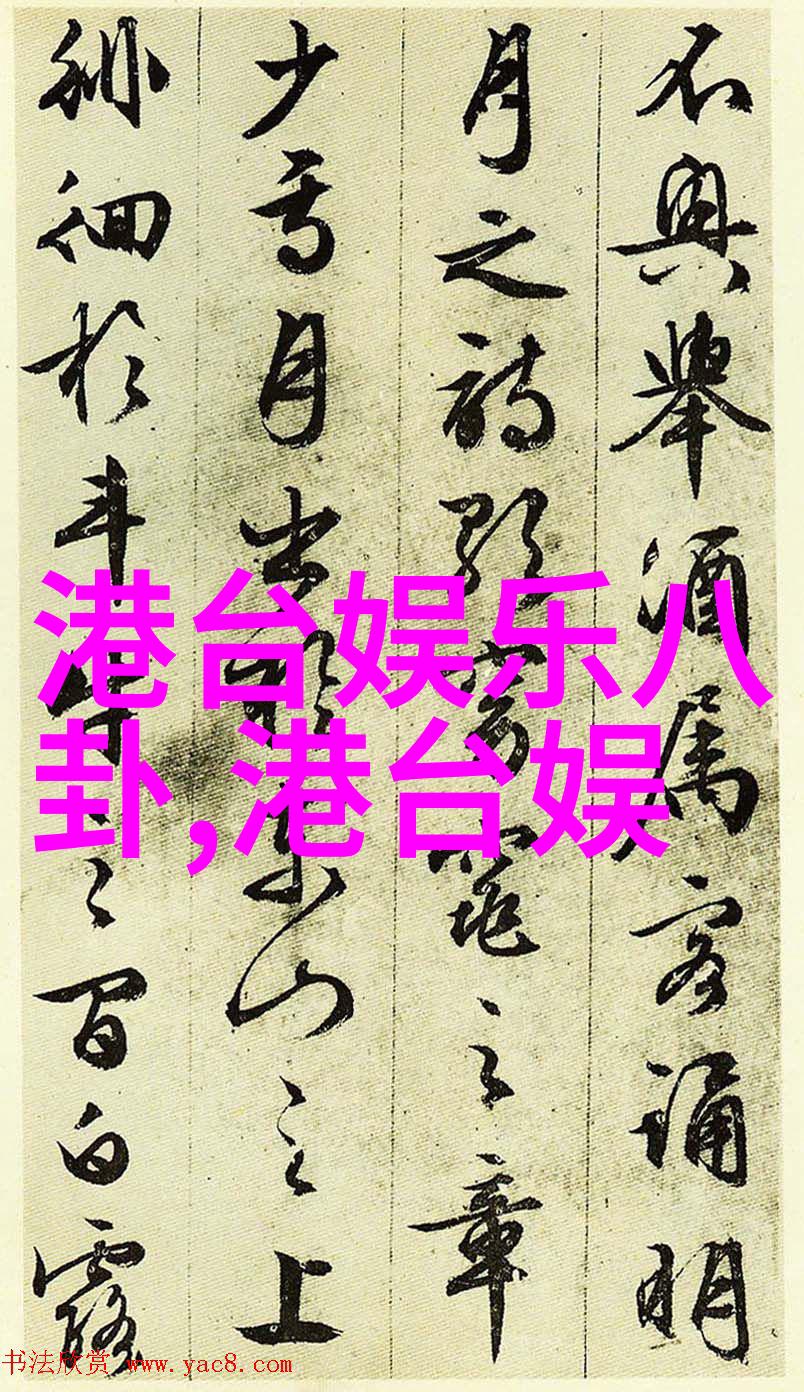 不興舉酒属客誦明
月之詩歌窈窕之章
少焉月出於東山之上
徘徊於斗牛之間白露
港台娱乐八
卦,港台娱
书法欣赏 www.yac8.com